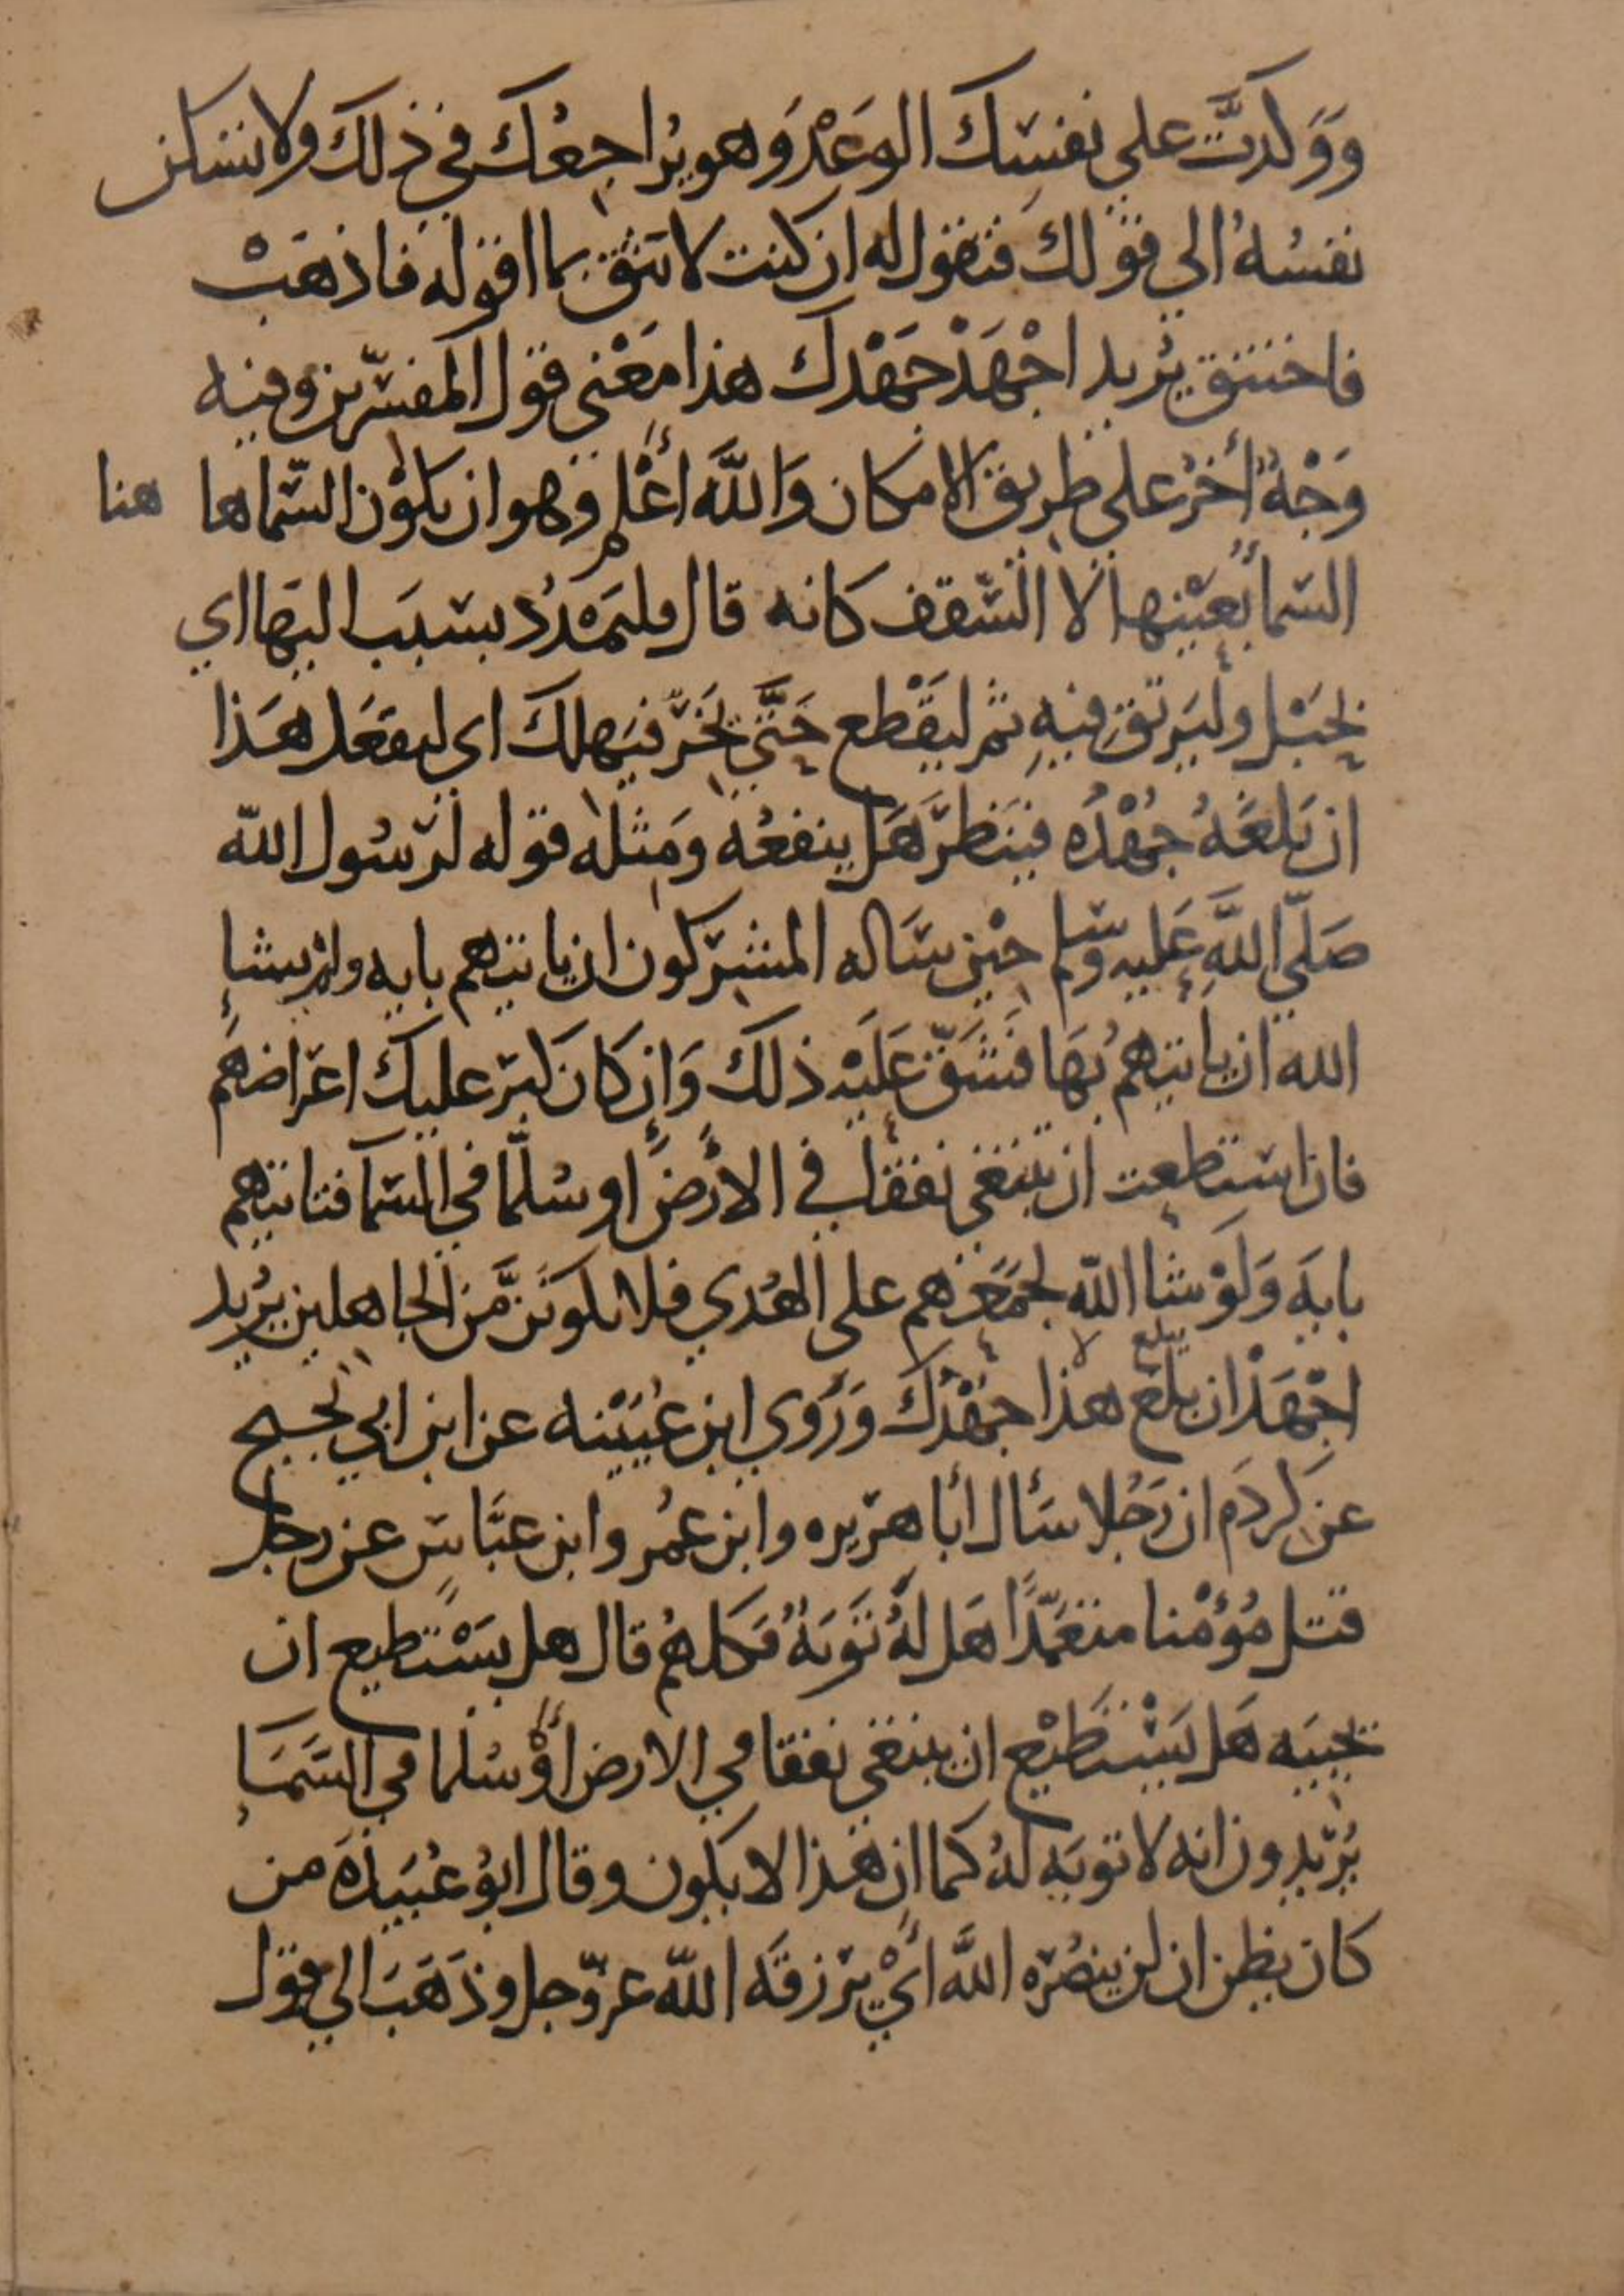 وَوَكدتَّ على نفسِك الوَعْدَ وَهو يُراجِعُك في ذلك ولا تسكن
نفسُهُ الي قولك فتقول له ان كنت لا تثق بما اقوله فاذهَبْ
فاختنق يُريد اجْهَدْ جَهْدك هذا مَعْني قول المفسّرين وفيه
وَجْهٌ أخرُ على طريق الامكان وَاللَّه اعْلم وهو ان يكوْن السّماها هنا
السّمأ بعَيْنها لا السّقف كانه قال فليَمْدُدْ بسَبَب اليهَا اي
بحَبْل وليَرتق فيهِ ثم ليَقْطع حَتَّي يَخرّ فيَهلك اي ليفعَل هَذا
ان بَلغَهُ جُهْدُه فينَظرَ هَل ينفعُه ومِثله قوله لرَسُول اللّه
صَلّي اللَّه عَليه وسَلم حيْن سَاله المشركون ان ياتيَهم بايه ولم يشأ
الله ان ياتيَهمُ بهَا فَشَقّ عَلَيْه ذلك وَاِن كَانَ كبرَ عليك اعرَاضهَم
فان استطعت ان تبتغي نفقًا في الأرْضِ او سُلّمًا في السَّمَا فتاتيهم
بايَه وَلَوْ شا اللّه لجمَعَهم على الهُدي فلا تكونَنَّ مَن الجاهلين يُريد
اجْهَدْ ان بلغ هذا جَهْدُك وَرَوي ابن عُيَيْنه عن ابن ابي نجيح
عن كَردَم ان رَجُلا سَأل أبا هرَيره وابن عمُر وابن عبَّاسٍ عن رجل
قتل مُؤْمنا متعَمّدًا هَل لهُ تَوبَهٌ فكلهُم قال هل يسَتَطيع ان
يحييَه هَل يَسْتطيْع ان يبتغي نفقا في الارض أوْ سُلما في السَّمَاءِ
يُرّيدون انه لا توبَه لهُ كما ان هَذا لا يكون وقال ابُو عُبَيدَهَ من
كان يظن ان لن ينصُرَه اللَّه أيْ يرَزقَه اللّه عزّ وجل وذَهَبَ الي قول